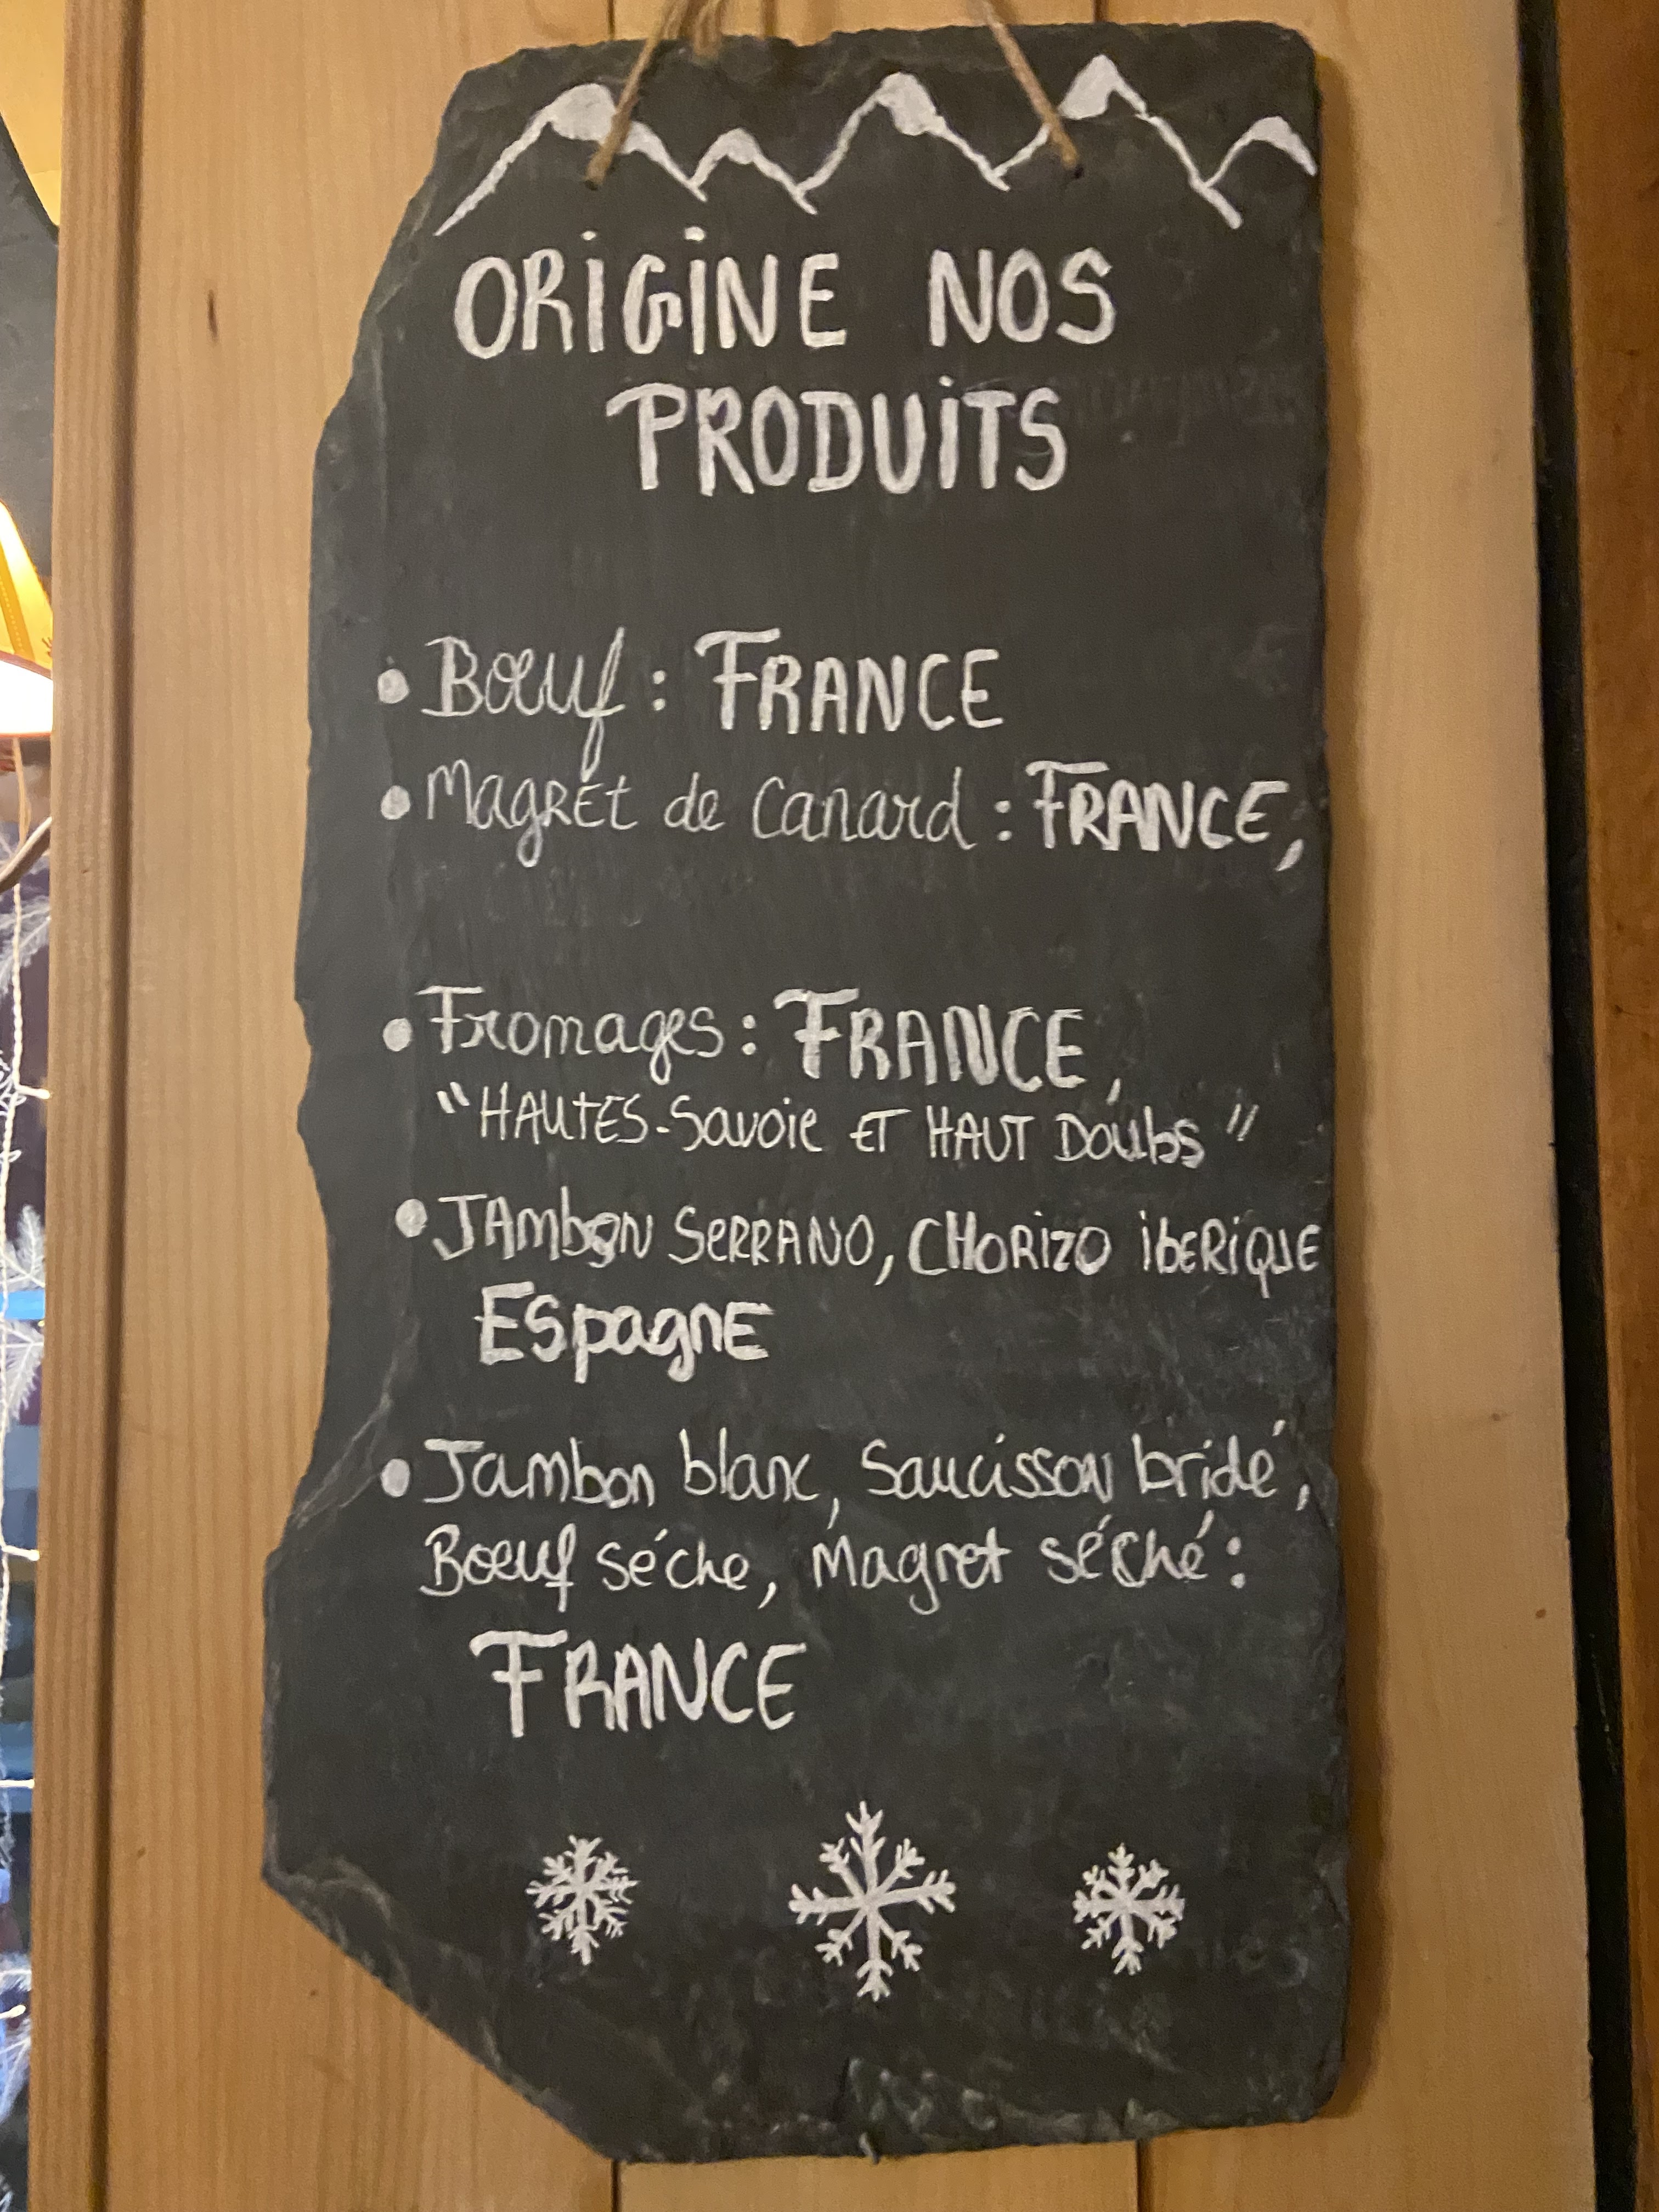 ORIGINE NOS
PRODUITS
• Bœuf : FRANCE
• Magret de Canard : FRANCE,
• Fromages : FRANCE,
"HAUTES-Savoie ET HAUT Doubs"
• JAmbon SERRANO, CHORIZO ibERIQUE
ESpagnE
• Jambon blanc, Saucisson bridé,
Bœuf séche, Magret séché :
FRANCE